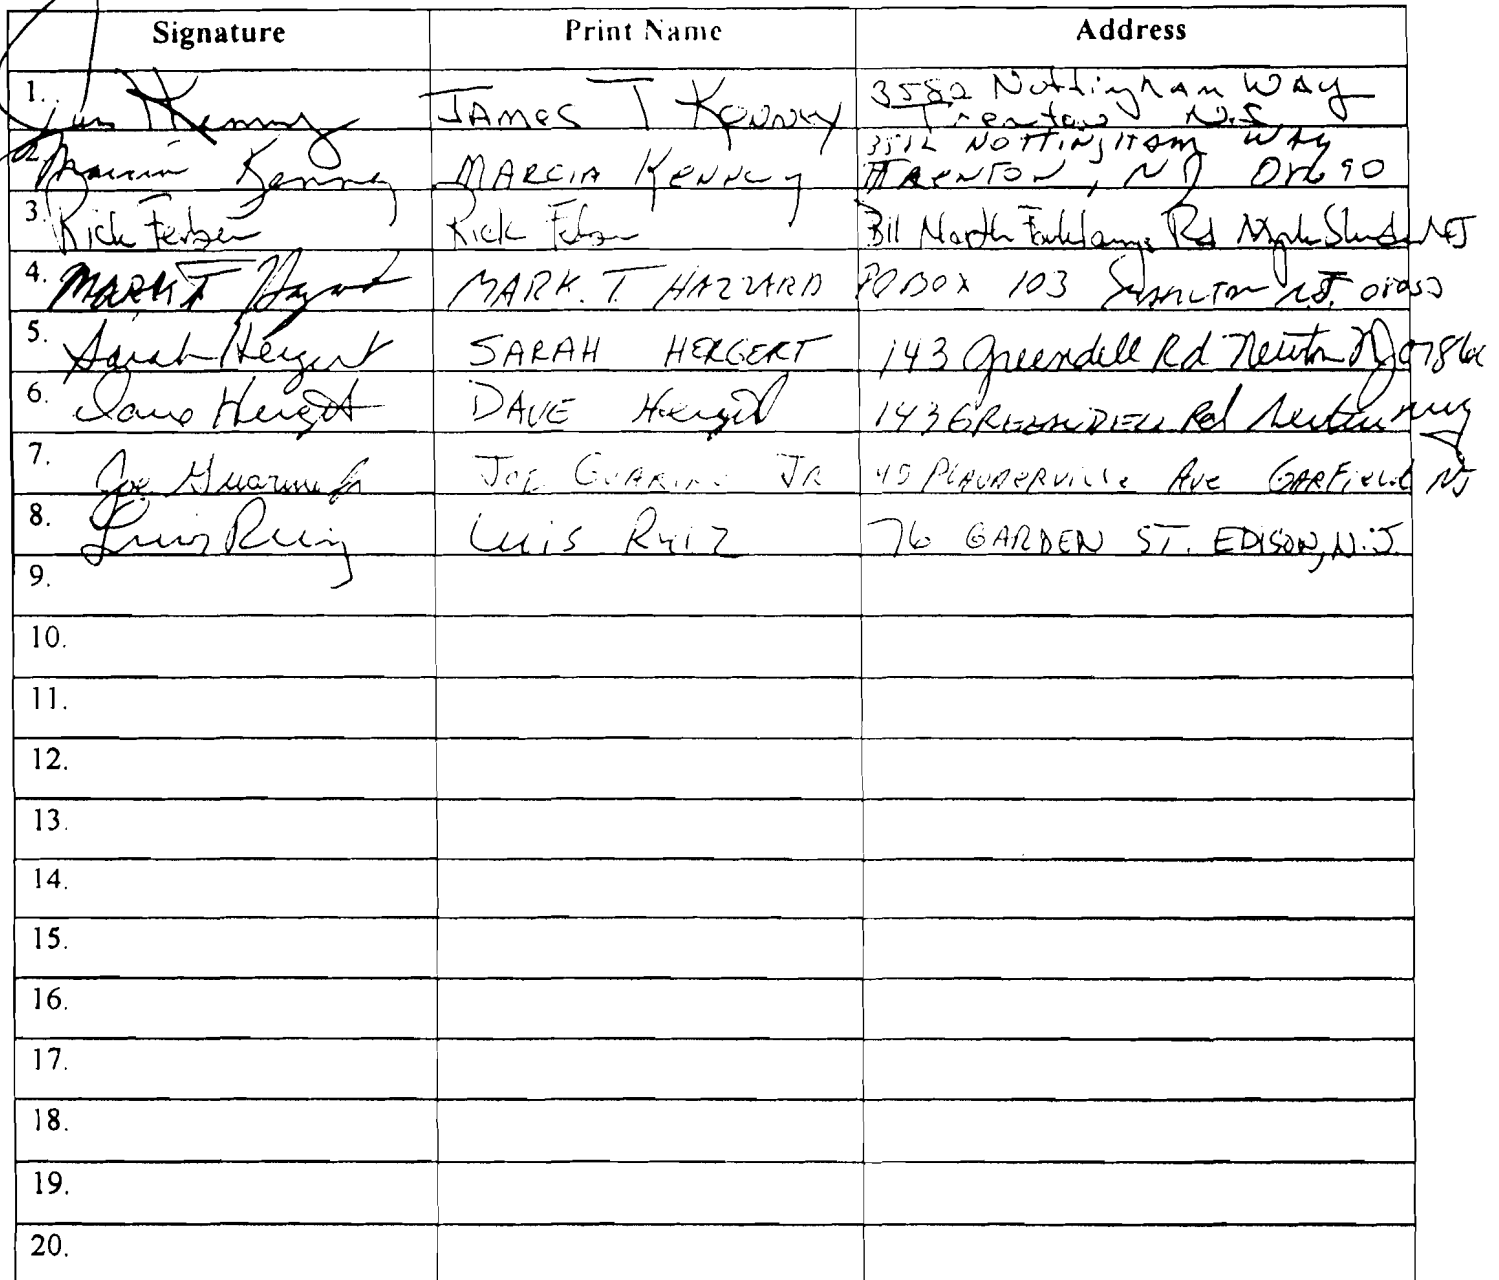 Signature Print Name Address
1. Jim Kenny JAMES T KENNEY 3582 Nottingham WAY
Trenton N.J.
2. Marcia Kenney MARCIA KENNEY NOTTINGHAM WAY
TRENTON, NJ
3. Rick Rick North Rd NJ
4. MARK T MARK. T. HAZZARD PO BOX 103 N.J.
5. Sarah Hergert SARAH HERGERT 143 Greendell Rd Newton NJ 07860
6. Dave Hergert DAVE Hergert 143 GREENDELL Rd Newton
7. Joe Guarino Jr JOE GUARINO JR Ave GARFIELD NJ
8. Luis Ruiz LUIS RUIZ 76 GARDEN ST. EDISON, N.J.
9.
10.
11.
12.
13.
14.
15.
16.
17.
18.
19.
20.